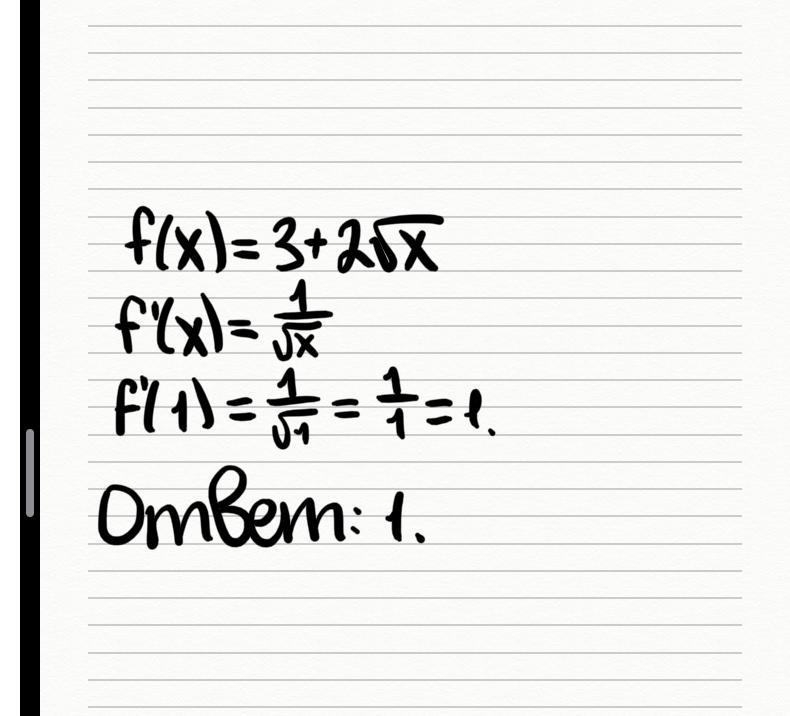 f(x) = 3+2√x
f'(x) = 1/√x
f'(1) = 1/√1 = 1/1 = 1.
Ответ: 1.